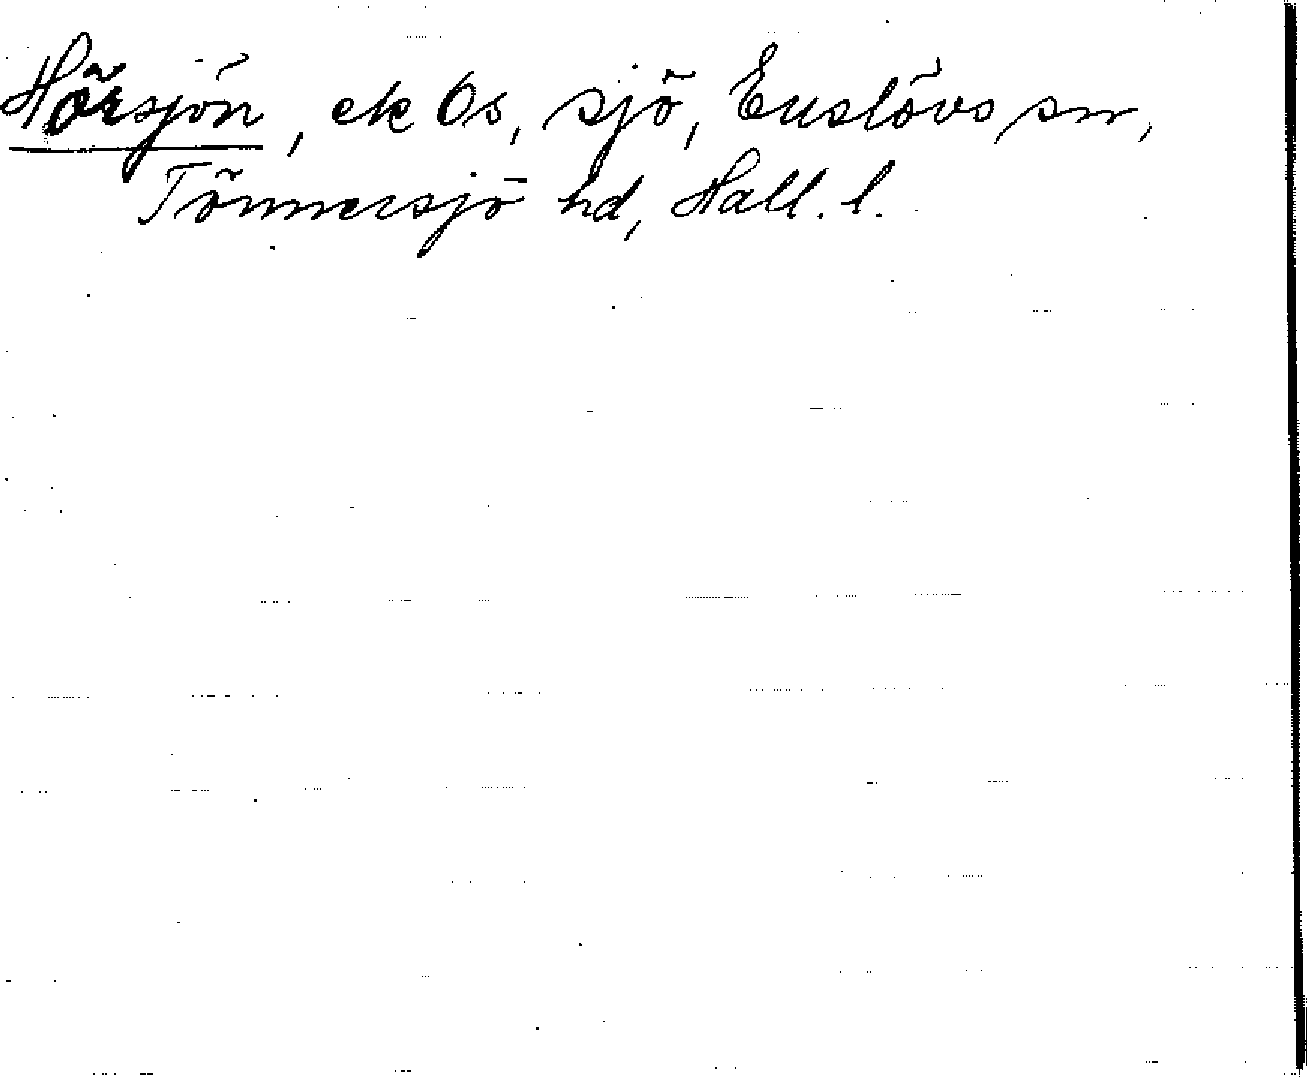 Hörsjön, ek 6s, sjö, Enslövs sn,
Tönnersjö hd, Hall. l.